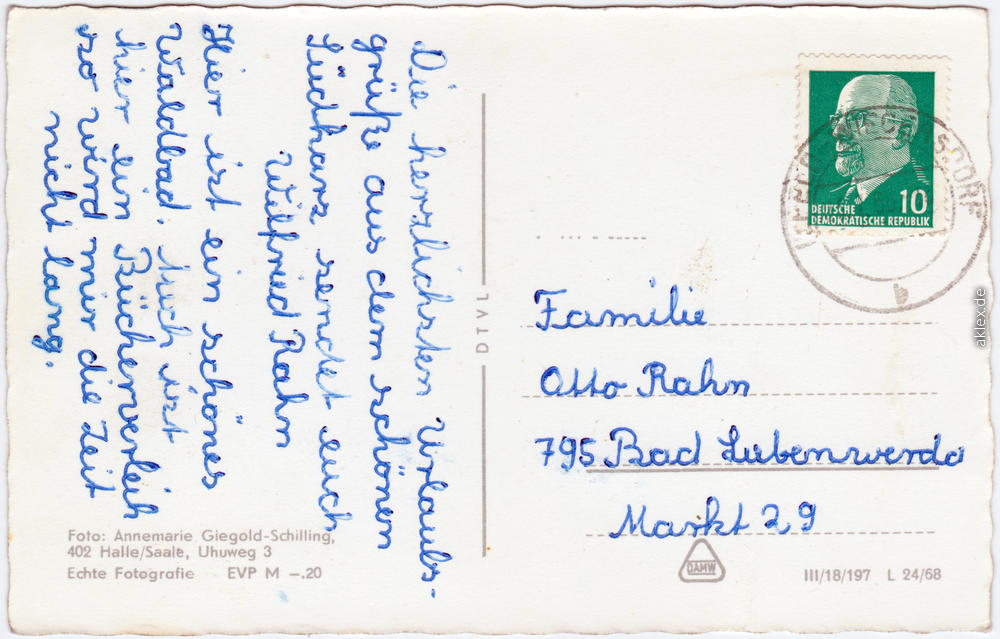 Die herzlichsten Urlaubs-
grüße aus dem schönen
Südharz sendet euch
Wilfried Rahn
Hier ist ein schönes
Waldbad. Auch ist
hier ein Bücherverleih
so wird mir die Zeit
nicht lang.
Foto: Annemarie Giegold-Schilling,
402 Halle/Saale, Uhuweg 3
Echte Fotografie EVP M –.20
DTVL
10
DEUTSCHE
DEMOKRATISCHE REPUBLIK
b
Familie
Otto Rahn
795 Bad Liebenwerda
Markt 29
DAMW
III/18/197 L 24/68
aklex.de